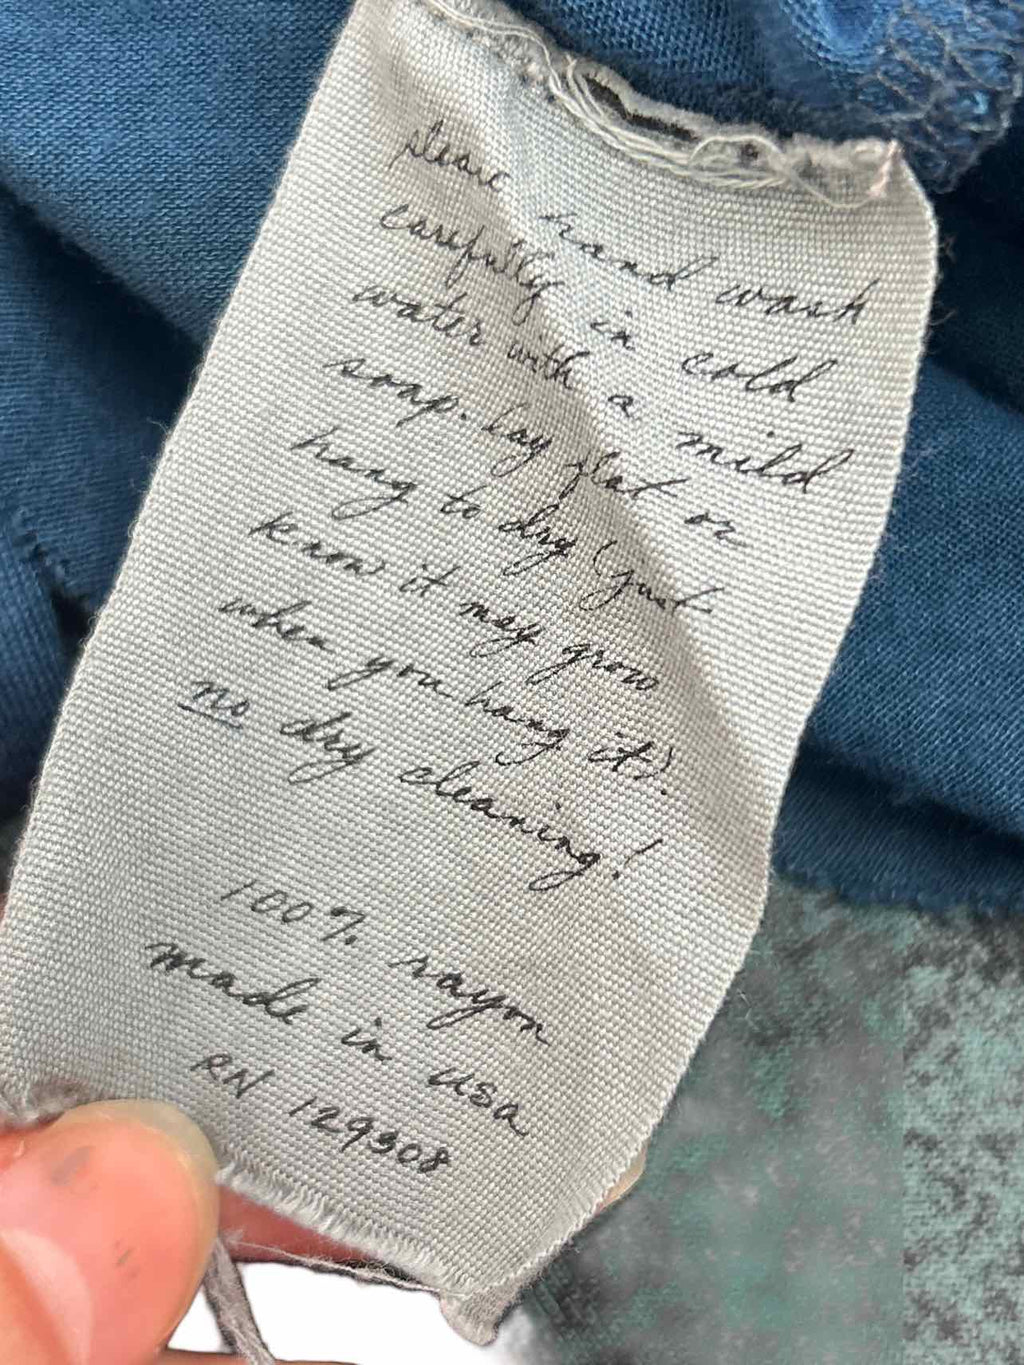 please hand wash
carefully in cold
water with a mild
soap. lay flat or
hang to dry (just
know it may grow
when you hang it).
no dry cleaning!
100% rayon
made in USA
RN 129308